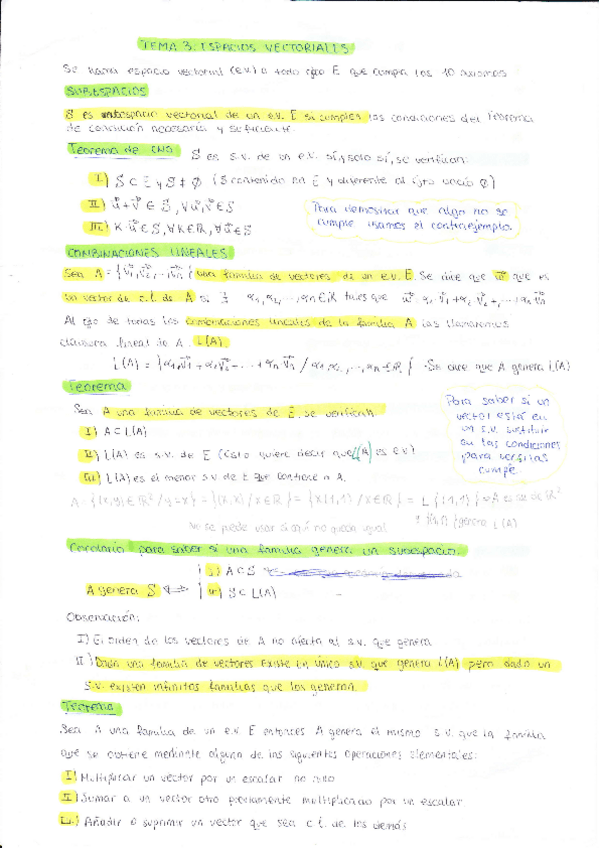 TEMA 3. ESPACIOS VECTORIALES
Se llama espacio vectorial (e.v) a todo cjto E que cumpla los 10 axiomas
SUBESPACIOS
S es subespacio vectorial de un e.v. E si cumplen las condiciones del Teorema
de condición necesaria y suficiente.
Teorema de CNS S es s.v. de un e.v. sí y solo sí, se verifican:
I) S ⊂ E y S ≠ ∅ (S contenido en E y diferente al cjto vacío ∅)
II) u⃗+v⃗ ∈ S, ∀u⃗,v⃗ ∈ S
III) K·u⃗ ∈ S, ∀K∈ℝ, ∀u⃗∈S
Para demostrar que algo no se
cumple usamos el contraejemplo.
COMBINACIONES LINEALES
Sea A = {v⃗₁, v⃗₂, ..., v⃗n} una familia de vectores de un e.v. E. Se dice que w⃗ que es
un vector de c.l. de A si ∃ α₁, α₂, ..., αn ∈ ℝ tales que w⃗ α₁v⃗₁+α₂v⃗₂+...+αnv⃗n
Al cjto de todas las combinaciones lineales de la familia A las llamaremos
clausura lineal de A. L(A)
L(A) = {α₁v⃗₁+α₂v⃗₂+...+αnv⃗n / α₁,α₂,...,αn∈ℝ} · Se dice que A genera L(A)
Teorema
Sea A una familia de vectores de E, se verifican.
I) A ⊂ L(A)
II) L(A) es s.v. de E (esto quiere decir que L(A) es e.v)
III) L(A) es el menor s.v de E que contiene a A.
Para saber si un
vector está en
un s.v. sustituir
en las condiciones
para ver si las
cumple.
A = {(x,y)∈ℝ²/y=x} = {(x,x)/x∈ℝ} = {x(1,1)/x∈ℝ} = L{(1,1)} A es s.v de ℝ²
No se puede usar si aquí no queda igual. {(1,1)} genera L(A)
Corolario para saber si una familia genera un subespacio.
I) A ⊂ S
A genera S ⟺ II) S ⊂ L(A)
Observación:
I) El orden de los vectores de A no afecta al s.v. que genera
II) Dada una familia de vectores existe un único s.v. que genera L(A) pero dado un
s.v. existen infinitas familias que los generan.
Teorema
Sea A una familia de un e.v. E entonces A genera el mismo s.v. que la familia
que se obtiene mediante alguna de las siguientes operaciones elementales:
I) Multiplicar un vector por un escalar no nulo
II) Sumar a un vector otro previamente multiplicado por un escalar
III) Añadir o suprimir un vector que sea c.l. de los demás